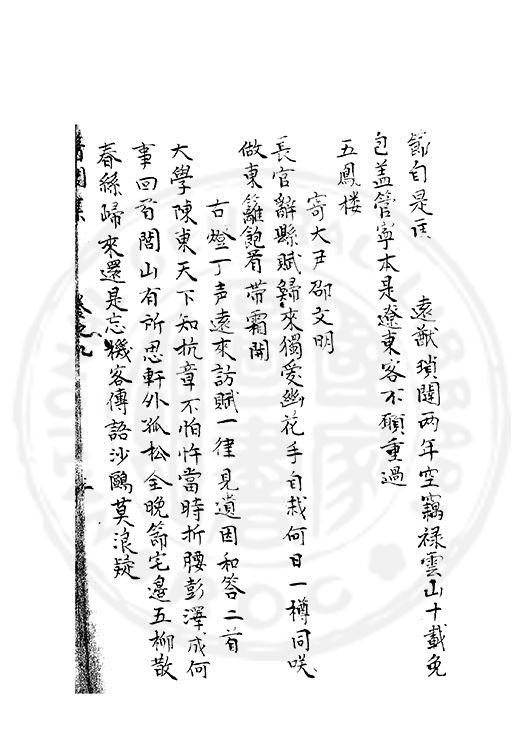 節自是
遠猷瑣闥兩年空竊祿雲山十載免
包羞管寧本是遼東客不願重過
五鳳楼
寄大尹邵文明
長官辭縣賦歸來獨愛幽花手自栽何日一樽同咲
傲東籬飽看帶霜開
古燈丁声遠來訪賦一律見遺因和答二首
大學陳東天下知抗章不怕忤當時折腰彭澤成何
事回首閭山有所思軒外孤松全晚節宅邊五柳散
春絲歸來還是忘機客傳語沙鷗莫浪疑
醫閭集 卷之九